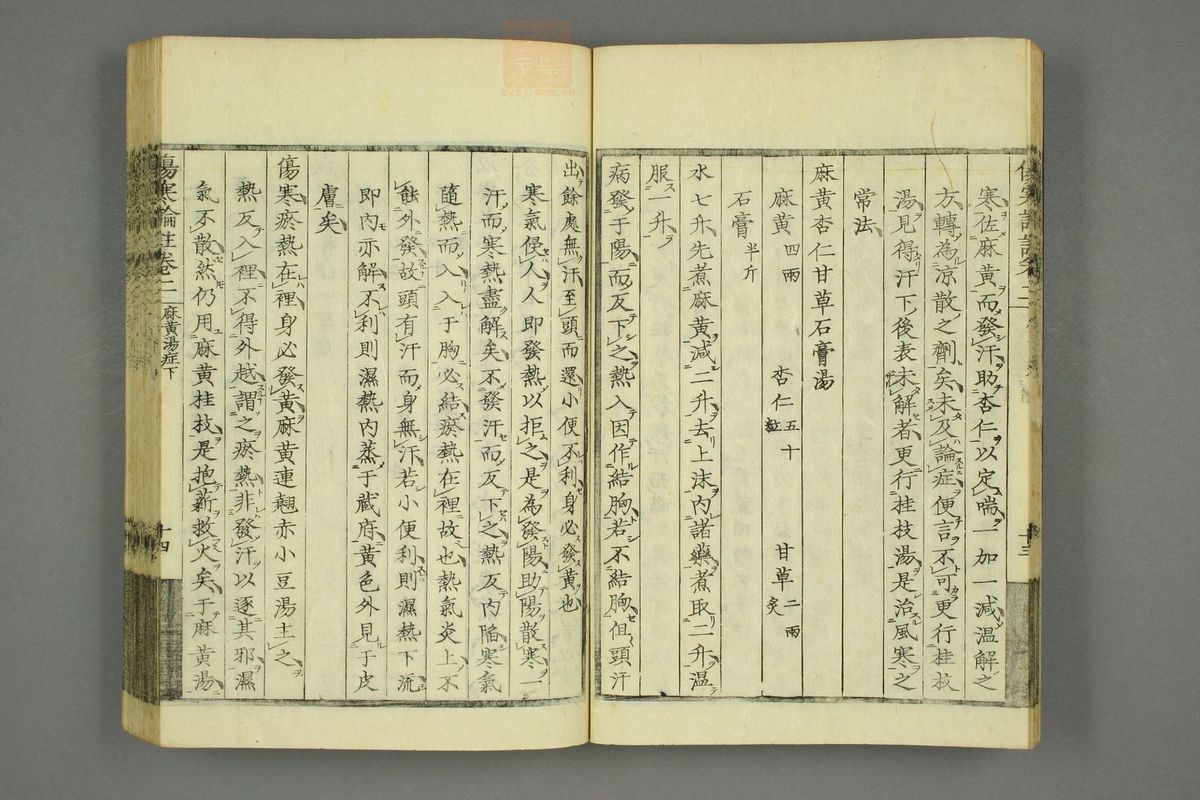 寒佐麻黃而發汗助杏仁以定喘一加一減溫解之
方轉為涼散之劑矣未及論症便言不可更行桂枝
湯見得汗下後表未解者更行桂枝湯是治風寒之
常法
麻黃杏仁甘草石膏湯
麻黃四兩 杏仁五十粒 甘草二兩炙
石膏半斤
水七升先煮麻黃減二升去上沫內諸藥煮取二升溫
服一升
病發于陽而反下之熱入因作結胸若不結胸但頭汗
出餘處無汗至頭而還小便不利身必發黃也
寒氣侵人人即發熱以拒之是為發陽助陽散寒一
汗而寒熱盡解矣不發汗而反下之熱反內陷寒氣
隨熱而入入于胸必結瘀熱在裡故也熱氣炎上不
能外發故頭有汗而身無汗若小便利則濕熱下流
即內亦解不利則濕熱內蒸于藏府黃色外見于皮
膚矣
傷寒瘀熱在裡身必發黃麻黃連翹赤小豆湯主之
熱反入裡不得外越謂之瘀熱非發汗以逐其邪濕
氣不散然仍用麻黃桂枝是抱薪救火矣于麻黃湯
傷寒論註卷二 麻黃湯症下 十四